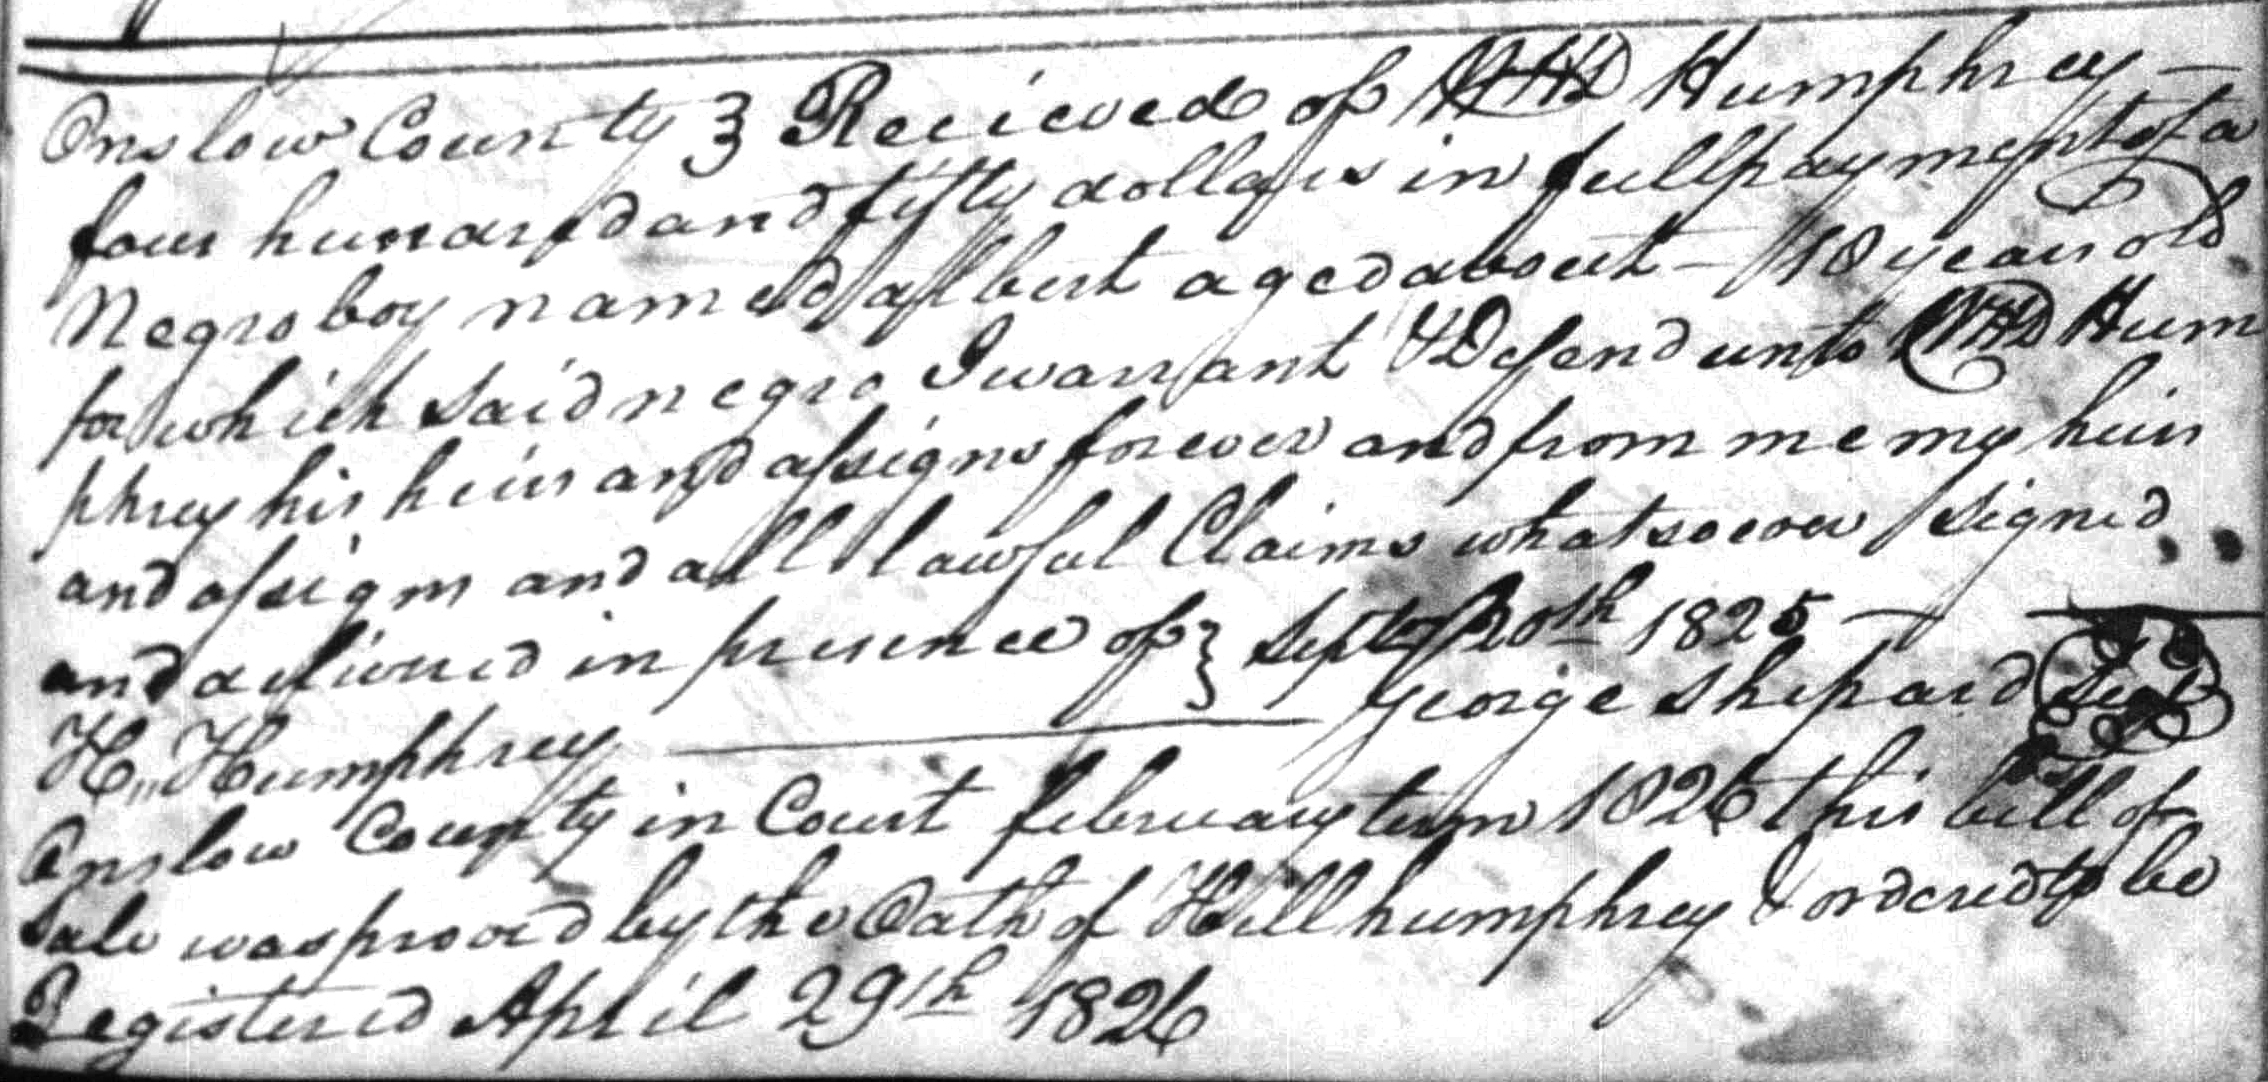 Onslow County } Recieved of WHD Humphrey —
four hundred and fifty dollars in full payment of a
Negro boy named albert aged about — 18 years old
for which said negro I warrant & Defend unto WHD Hum
phrey his heirs and assigns forever and from me my heirs
and assigns and all lawful Claims whatsoever signed
and delivered in presence of } Sept 20th 1825 —
H. Humphrey — George Shepard Seal
Onslow County in Court february term 1826 this bill of
Sale was proved by the Oath of Hill humphrey & ordered to be
Registered April 29th 1826